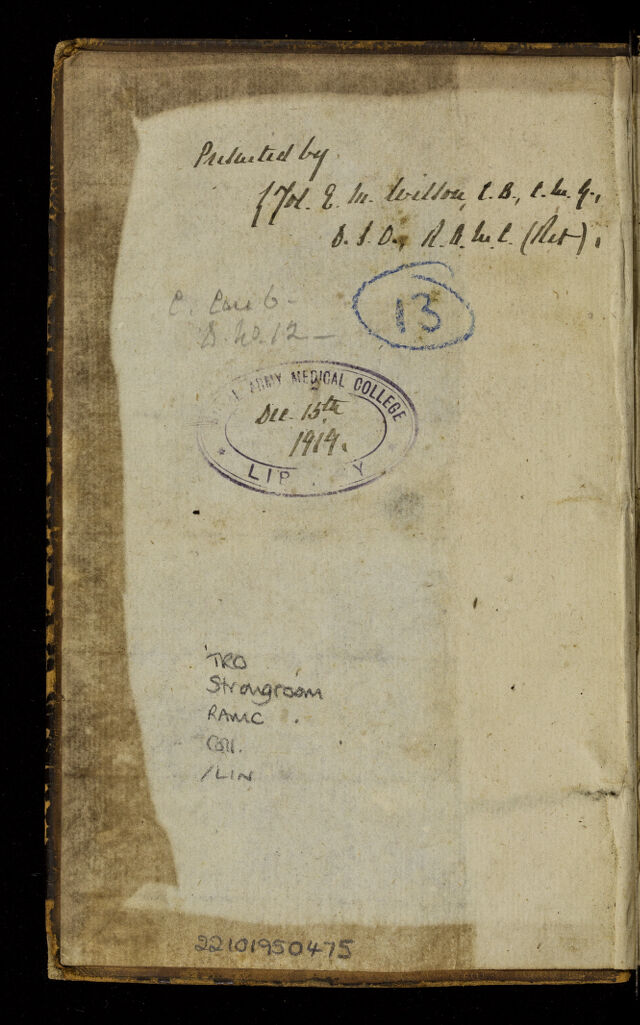 Presented by
Col. E. M. Wilson, C.B., C.M.G.,
D.S.O., R.A.M.C. (Ret).
13
D. No. 12 -
ARMY MEDICAL COLLEGE
Dec. 15th
1919.
TRO
Strongroom
RAMC
Coll.
/LIN
22101950475